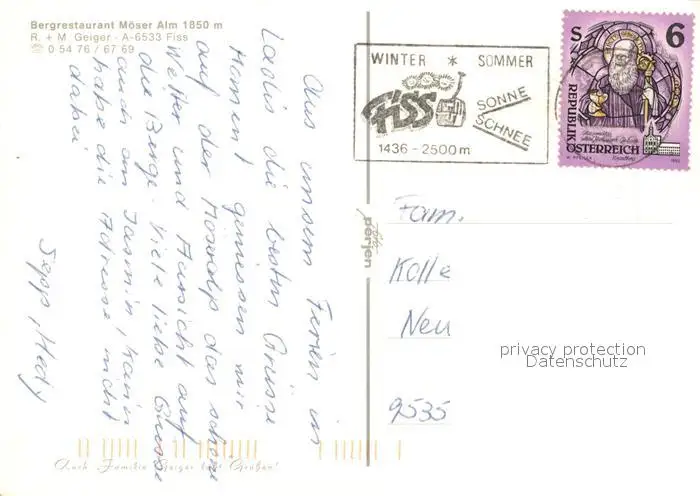 Bergrestaurant Möser Alm 1850 m
R. + M Geiger - A-6533 Fiss
☎ 0 54 76 / 67 69
Aus unsern Ferien in
Ladis die besten Grüsse
Moment geniessen wir
auf der Möseralp das schöne
Wetter und Aussicht auf
die Berge. Viele liebe Grüsse
auch am Jasmin, Karin
habe die Adresse nicht
dabei
Sepp, Hedy
Auch Familie Geiger läßt Grüßen!
foto
perjen
WINTER * SOMMER
FISS
SONNE
SCHNEE
1436 - 2500 m
S 6
REPUBLIK
ÖSTERREICH
Fam.
Kolle
Neu
9535
privacy protection
Datenschutz